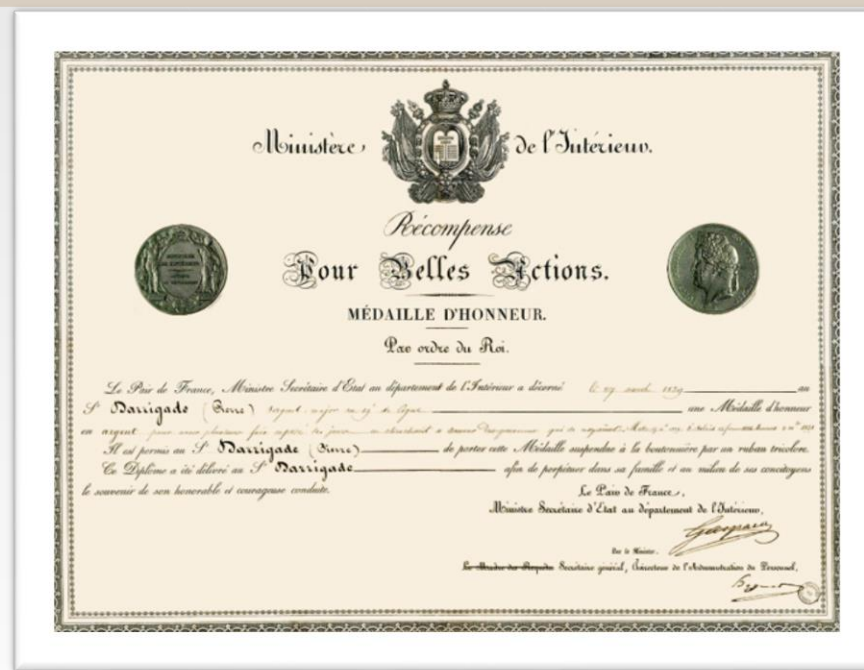 Ministère de l'Intérieur.
Récompense
Pour Belles Actions.
MÉDAILLE D'HONNEUR.
Par ordre du Roi.
Le Pair de France, Ministre Secrétaire d'Etat au département de l'Intérieur a décerné le 29 1839 au
S.r Darrigade (Pierre) sergent major au de ligne une Médaille d'honneur
en argent pour avoir plusieurs fois exposé ses jours en cherchant à sauver des personnes qui se noyaient
Il est permis au S.r Darrigade (Pierre) de porter cette Médaille suspendue à la boutonnière par un ruban tricolore.
Ce Diplôme a été délivré au S.r Darrigade afin de perpétuer dans sa famille et au milieu de ses concitoyens
le souvenir de son honorable et courageuse conduite.
Le Pair de France,
Ministre Secrétaire d'Etat au département de l'Intérieur,
Gasparin
Par le Ministre.
Secrétaire général, Directeur de l'Administration du Personnel,